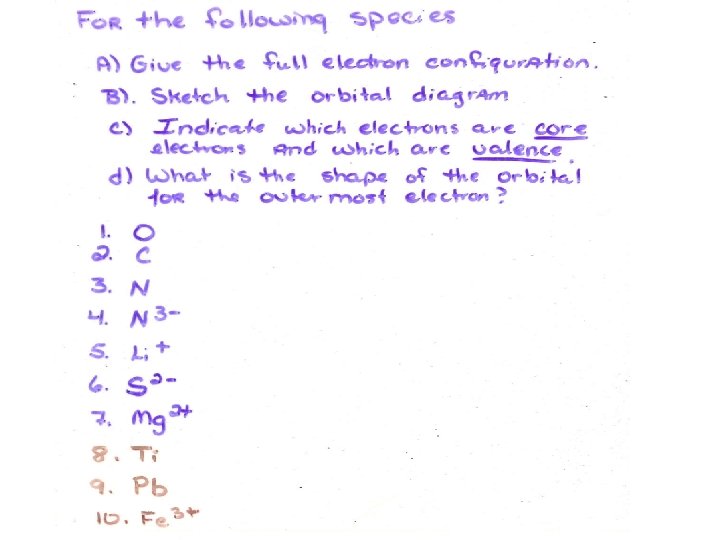 FOR the following species
A) Give the full electron configuration.
B). Sketch the orbital diagram
c) Indicate which electrons are core
electrons And which are valence.
d) What is the shape of the orbital
for the outer most electron?
1. O
2. C
3. N
4. N3-
5. Li+
6. S2-
7. Mg2+
8. Ti
9. Pb
10. Fe3+